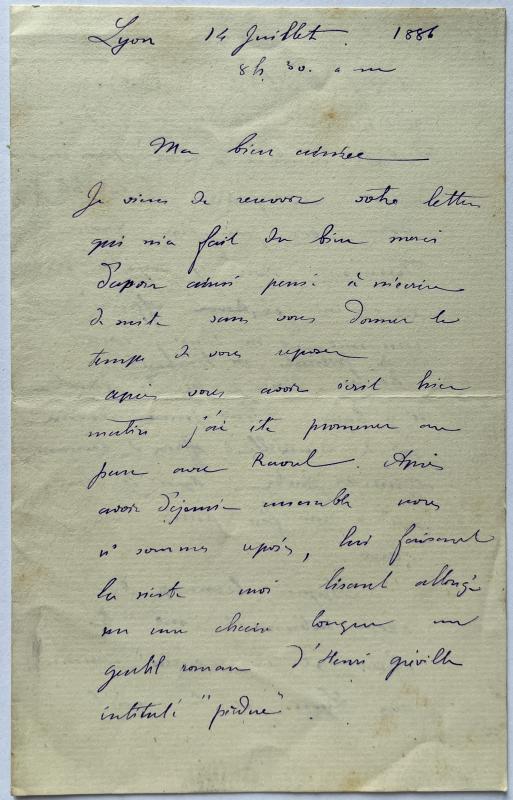 Lyon 14 Juillet 1886
8h. 30. a m
Ma bien aimée
Je viens de recevoir votre lettre
qui m'a fait du bien merci
d'avoir ainsi pensé à m'écrire
de suite sans vous donner le
temps de vous reposer
après vous avoir écrit hier
matin j'ai été promener au
parc avec Raoul. Après
avoir déjeuné ensemble nous
n. sommes reposés, lui faisant
la sieste moi lisant allongé
sur une chaise longue un
gentil roman d'Henri gréville
intitulé "perdue"